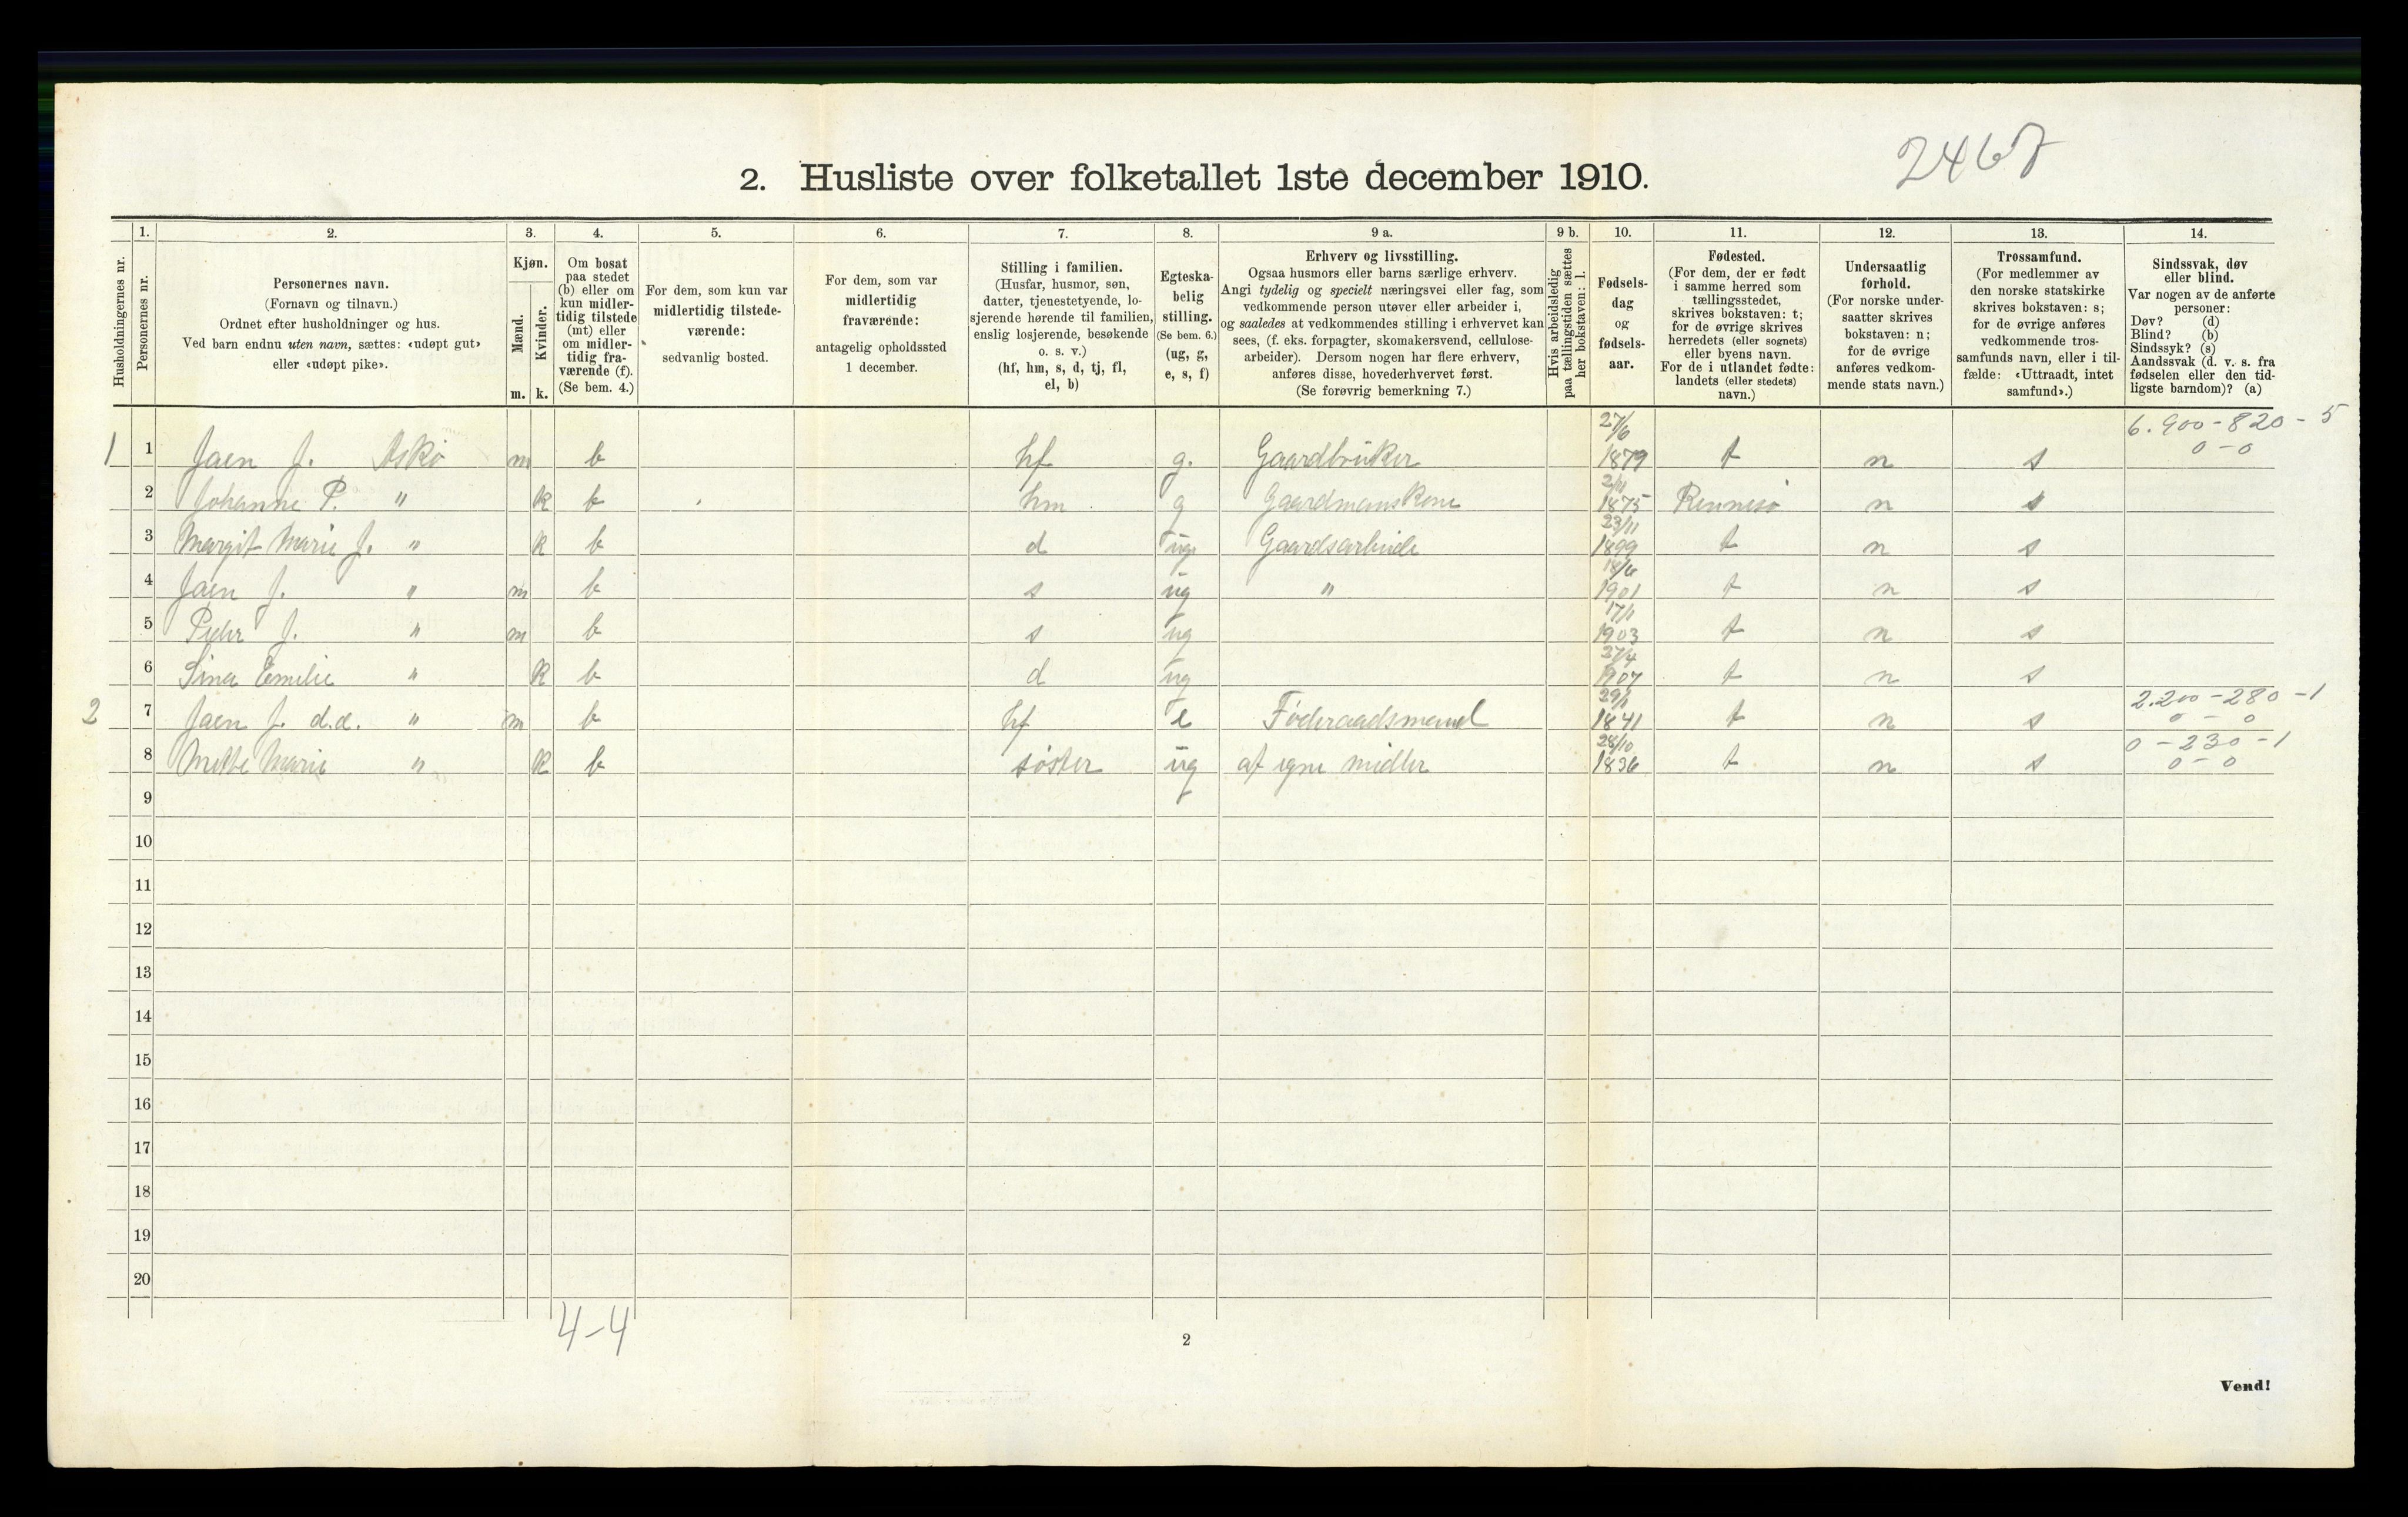 2467
2. Husliste over folketallet 1ste december 1910.
Husholdningernes nr.
1.
Personernes nr.
2.
Personernes navn.
(Fornavn og tilnavn.)
Ordnet efter husholdninger og hus.
Ved barn endnu uten navn, sættes: «udøpt gut»
eller «udøpt pike».
3.
Kjøn.
Mænd.
m.
Kvinder.
k.
4.
Om bosat
paa stedet
(b) eller om
kun midler-
tidig tilstede
(mt) eller
om midler-
tidig fra-
værende (f).
(Se bem. 4.)
5.
For dem, som kun var
midlertidig tilstede-
værende:
sedvanlig bosted.
6.
For dem, som var
midlertidig
fraværende:
antagelig opholdssted
1 december.
7.
Stilling i familien.
(Husfar, husmor, søn,
datter, tjenestetyende, lo-
sjerende hørende til familien,
enslig losjerende, besøkende
o. s. v.)
(hf, hm, s, d, tj, fl,
el, b)
8.
Egteska-
belig
stilling.
(Se bem. 6.)
(ug, g,
e, s, f)
9 a.
Erhverv og livsstilling.
Ogsaa husmors eller barns særlige erhverv.
Angi tydelig og specielt næringsvei eller fag, som
vedkommende person utøver eller arbeider i,
og saaledes at vedkommendes stilling i erhvervet kan
sees, (f. eks. forpagter, skomakersvend, cellulose-
arbeider). Dersom nogen har flere erhverv,
anføres disse, hovederhvervet først.
(Se forøvrig bemerkning 7.)
9 b.
Hvis arbeidsledig
paa tællingstiden sættes
her bokstaven: l.
10.
Fødsels-
dag
og
fødsels-
aar.
11.
Fødested.
(For dem, der er født
i samme herred som
tællingsstedet,
skrives bokstaven: t;
for de øvrige skrives
herredets (eller sognets)
eller byens navn.
For de i utlandet fødte:
landets (eller stedets)
navn.)
12.
Undersaatlig
forhold.
(For norske under-
saatter skrives
bokstaven: n;
for de øvrige
anføres vedkom-
mende stats navn.)
13.
Trossamfund.
(For medlemmer av
den norske statskirke
skrives bokstaven: s;
for de øvrige anføres
vedkommende tros-
samfunds navn, eller i til-
fælde: «Uttraadt, intet
samfund».)
14.
Sindssvak, døv
eller blind.
Var nogen av de anførte
personer:
Døv? (d)
Blind? (b)
Sindssyk? (s)
Aandssvak (d. v. s. fra
fødselen eller den tid-
ligste barndom)? (a)
1 1 Jaen J. Askø m b hf g. Gaardbruker 27/6 1879 t n s 6.900-820-5 0-0
2 Johanne P. " k b hm g Gaardmanskone 2/11 1875 Rennesø n s
3 Margit Marie J. " k b d ug Gaardsarbeide 23/11 1899 t n s
4 Jaen J. " m b s ug " 1901 t n s
5 Peder J. " m b s ug 17/1 1903 t n s
6 Sina Emilie " k b d ug 27/4 1907 t n s
2 7 Jaen J. d.æ. " m b hf e Føderaadsmand 29/1 1841 t n s 2.200-280-1 0-0
8 Mette Marie " k b søster ug af egne midler 28/10 1836 t n s 0-230-1 0-0
9
10
11
12
13
14
15
16
17
18
19
20
4-4
2
Vend!